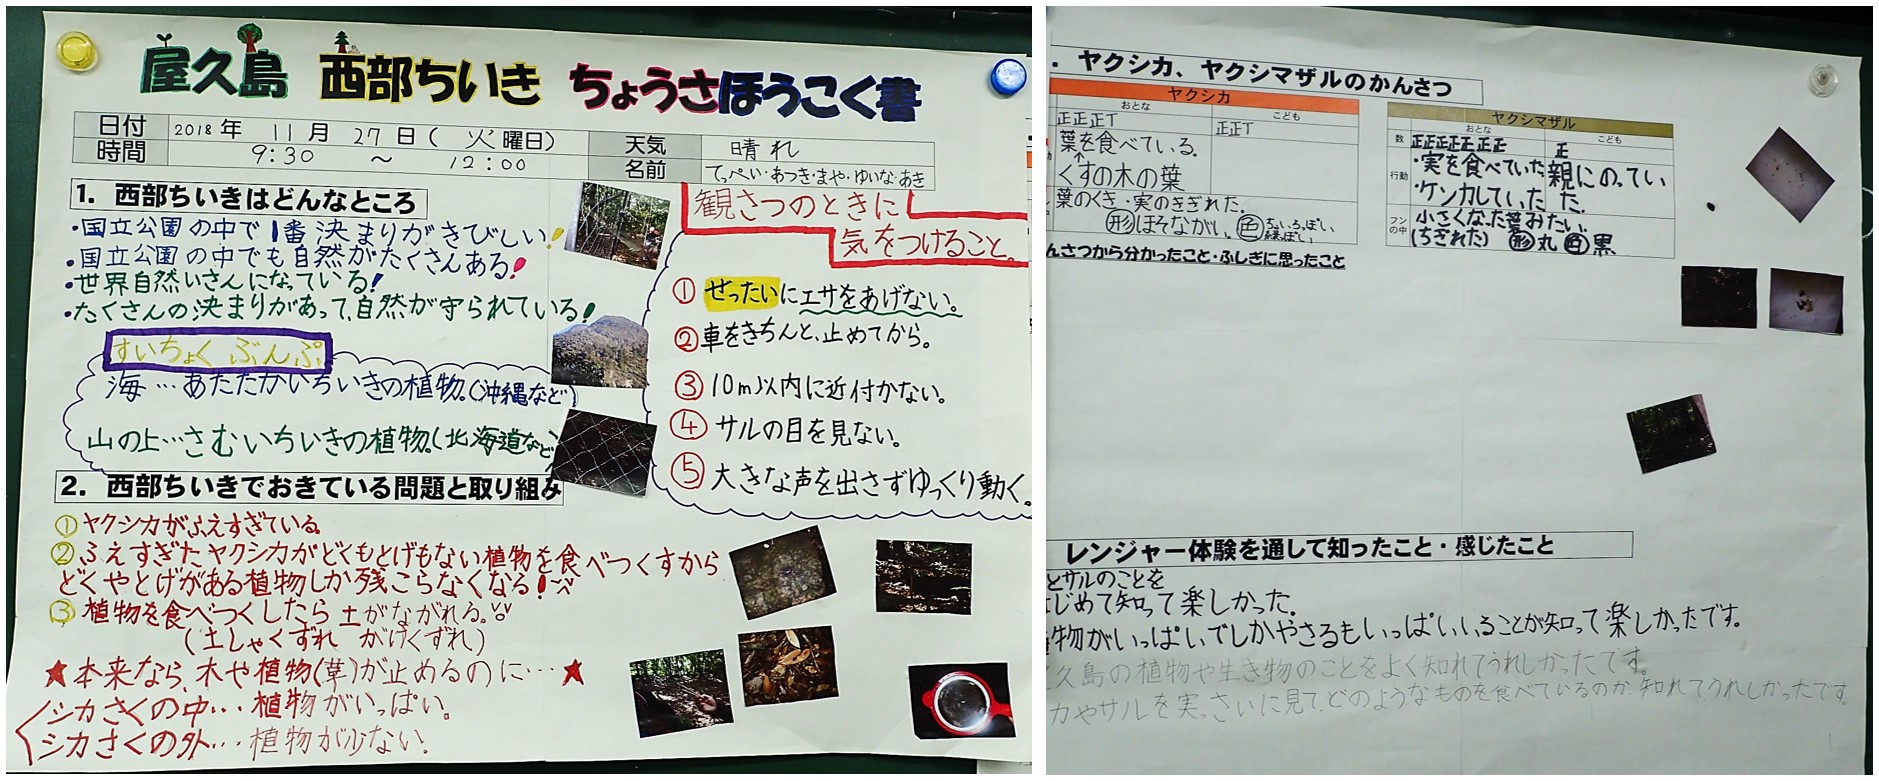 屋久島 西部ちいき ちょうさほうこく書
日付 2018年 11月 27日(火曜日) 天気 晴れ
時間 9:30 ～ 12:00 名前 てっぺい・あつき・まや・ゆいな・あき
1. 西部ちいきはどんなところ
・国立公園の中で1番決まりがきびしい!
・国立公園の中でも自然がたくさんある!
・世界自然いさんになっている!
・たくさんの決まりがあって、自然が守られている!
すいちょくぶんぷ
海…あたたかいちいきの植物。(沖縄など)
山の上…さむいちいきの植物。(北海道など)
観さつのときに
気をつけること。
①ぜったいにエサをあげない。
②車をきちんと、止めてから。
③10m以内に近付かない。
④サルの目を見ない。
⑤大きな声を出さずゆっくり動く。
2. 西部ちいきでおきている問題と取り組み
①ヤクシカがふえすぎている。
②ふえすぎたヤクシカがどくもとげもない植物を食べつくすから
どくやとげがある植物しか残こらなくなる!
③植物を食べつくしたら土がながれる。
(土しゃくずれ がけくずれ)
★本来なら、木や植物(草)が止めるのに…★
シカさくの中…植物がいっぱい。
シカさくの外…植物が少ない。
. ヤクシカ、ヤクシマザルのかんさつ
ヤクシカ
おとな こども
正正正T 正正T
葉を食べている。
↑
くすの木の葉
葉のくき・実のきぎれた.
形ほそながい。色ちゃいろっぽい、緑っぽい
ヤクシマザル
おとな こども
数 正正正正正正 正
行動 ・実を食べていた 親にのってい
・ケンカしていた た.
フンの中 小さくなった葉みたい.
(ちぎれた) 形丸 色黒
んさつから分かったこと・ふしぎに思ったこと
レンジャー体験を通して知ったこと・感じたこと
とサルのことを
はじめて知って楽しかった.
物がいっぱいでしかやさるもいっぱいいることが知って楽しかったです。
久島の植物や生き物のことをよく知れてうれしかったです。
カやサルを実っさいに見て、どのようなものを食べているのか、知れてうれしかったです。